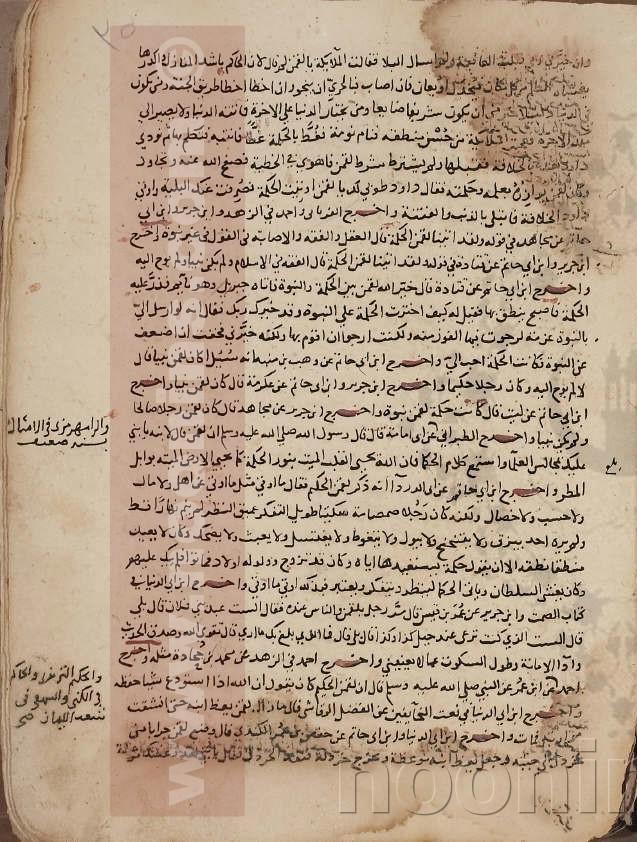 وان خيرني ربي قبلت العافية ولم اسال البلا فقالت الملايكة بالقمن لم قال لان الحاكم باشد المنازل واكدرها
يغشاه الظلم من كل مكان فيخذل او يعان فان اصاب فبالحري ان ينجو وان اخطا اخطا طريق الجنة ومن يكون
في الدنيا ذليلا خير من ان يكون شريفا ضايعا ومن يختار الدنيا على الاخرة فاتته الدنيا ولا يصير الى
ملك الاخرة فعجبت الملايكة من حسن منطقه فنام نومة فغط بالحكمة غطا فانتبه فتكلم بها ثم نودي
داود بعده بالخلافة فقبلها ولم يشترط شرط لقمن فاهوى في الخطية فصفح الله عنه وتجاوز
وكان لقمن يوازره بعلمه وحكمته فقال داود طوبى لك يالقمن اوتيت الحكمة فصرفت عنك البلية واوتي
داود الخلافة فابتلي بالذنب والفتنة واخرج الفريابي واحمد في الزهد وابن جرير وابن ابي
حاتم عن مجاهد في قوله ولقد اتينا لقمن الحكمة قال العقل والفقه والاصابة في القول في غير نبوة واخرج
ابن جرير وابن ابي حاتم عن قتادة في قوله ولقد اتينا لقمن الحكمة قال الفقه في الاسلام ولم يكن نبيا ولم يوح اليه
واخرج ابن ابي حاتم عن قتادة قال خير الله لقمن بين الحكمة والنبوة فاتاه جبريل وهو نايم فذر عليه
الحكمة فاصبح ينطق بها فقيل له كيف اخترت الحكمة على النبوة وقد خيرك ربك فقال انه لو ارسل الي
بالنبوة عزمة لرجوت فيها الفوز منه ولكنت ارجو ان اقوم بها ولكنه خيرني فخفت ان اضعف
عن النبوة فكانت الحكمة احب الي واخرج ابن ابي حاتم عن وهب بن منبه انه سئل اكان لقمن نبيا قال
لا لم يوح اليه وكان رجلا حكيما واخرج ابن جرير وابن ابي حاتم عن عكرمة قال كان لقمن نبيا واخرج
ابن ابي حاتم عن ليث قال كانت حكمة لقمن نبوة واخرج ابن جرير عن مجاهد قال كان لقمن رجلا صالحا
ولم يكن نبيا واخرج الطبراني عن ابي امامة قال قال رسول الله صلى الله عليه وسلم ان لقمن قال لابنه يا بني
عليك بمجالس العلما واستمع كلام الحكما فان الله يحيي القلب الميت بنور الحكمة كما يحيي الارض الميتة بوابل
المطر واخرج ابن ابي حاتم عن ابي الدردا انه ذكر لقمن الحكيم فقال ما اوتي ما اوتي عن اهل ولا مال
ولا حسب ولا خصال ولكنه كان رجلا صمصامة سكيتا طويل التفكر عميق النظر لم ينم نهارا قط
ولم يره احد يبزق ولا يتنحنح ولا يبول ولا يتغوط ولا يغتسل ولا يعبث ولا يضحك وكان لا يعيد
منطقا نطقه الا ان يقول حكمة يستعيدها اياه وكان قد تزوج وولد له اولاد فماتوا فلم يبك عليهم
وكان يغشى السلطان وياتي الحكما لينظر ويتفكر ويعتبر فبذلك اوتي ما اوتي واخرج ابن ابي الدنيا في
كتاب الصمت وابن جرير عن عمر بن قيس قال مر رجل بلقمن والناس عنده فقال الست عبد بني فلان قال بلى
قال الست الذي كنت ترعى عند جبل كذا وكذا قال بلى قال فما الذي بلغ بك ما ارى قال تقوى الله وصدق الحديث
وادا الامانة وطول السكوت عما لا يعنيني واخرج احمد في الزهد عن محمد بن جحادة مثله واخرج
احمد عن ابن عمر عن النبي صلى الله عليه وسلم قال ان لقمن الحكيم كان يقول ان الله اذا استودع شيا حفظه
واخرج ابن ابي الدنيا في نعت الخايفين عن الفضل الرقاشي قال ما زال لقمن يعظ ابنه حتى انشقت
مرارته فمات واخرج ابن ابي الدنيا وابن ابي حاتم عن حفص بن عمر الكندي قال وضع لقمن جرابا من
خردل الى جنبه وجعل يعظ ابنه موعظة ويخرج خردلة فنفد الخردل فقال
والرامهرمزي في الامثال
بسند ضعيف
والحكيم الترمذي والحاكم
في الكنى والبيهقي في
شعب الايمان صح
noonin